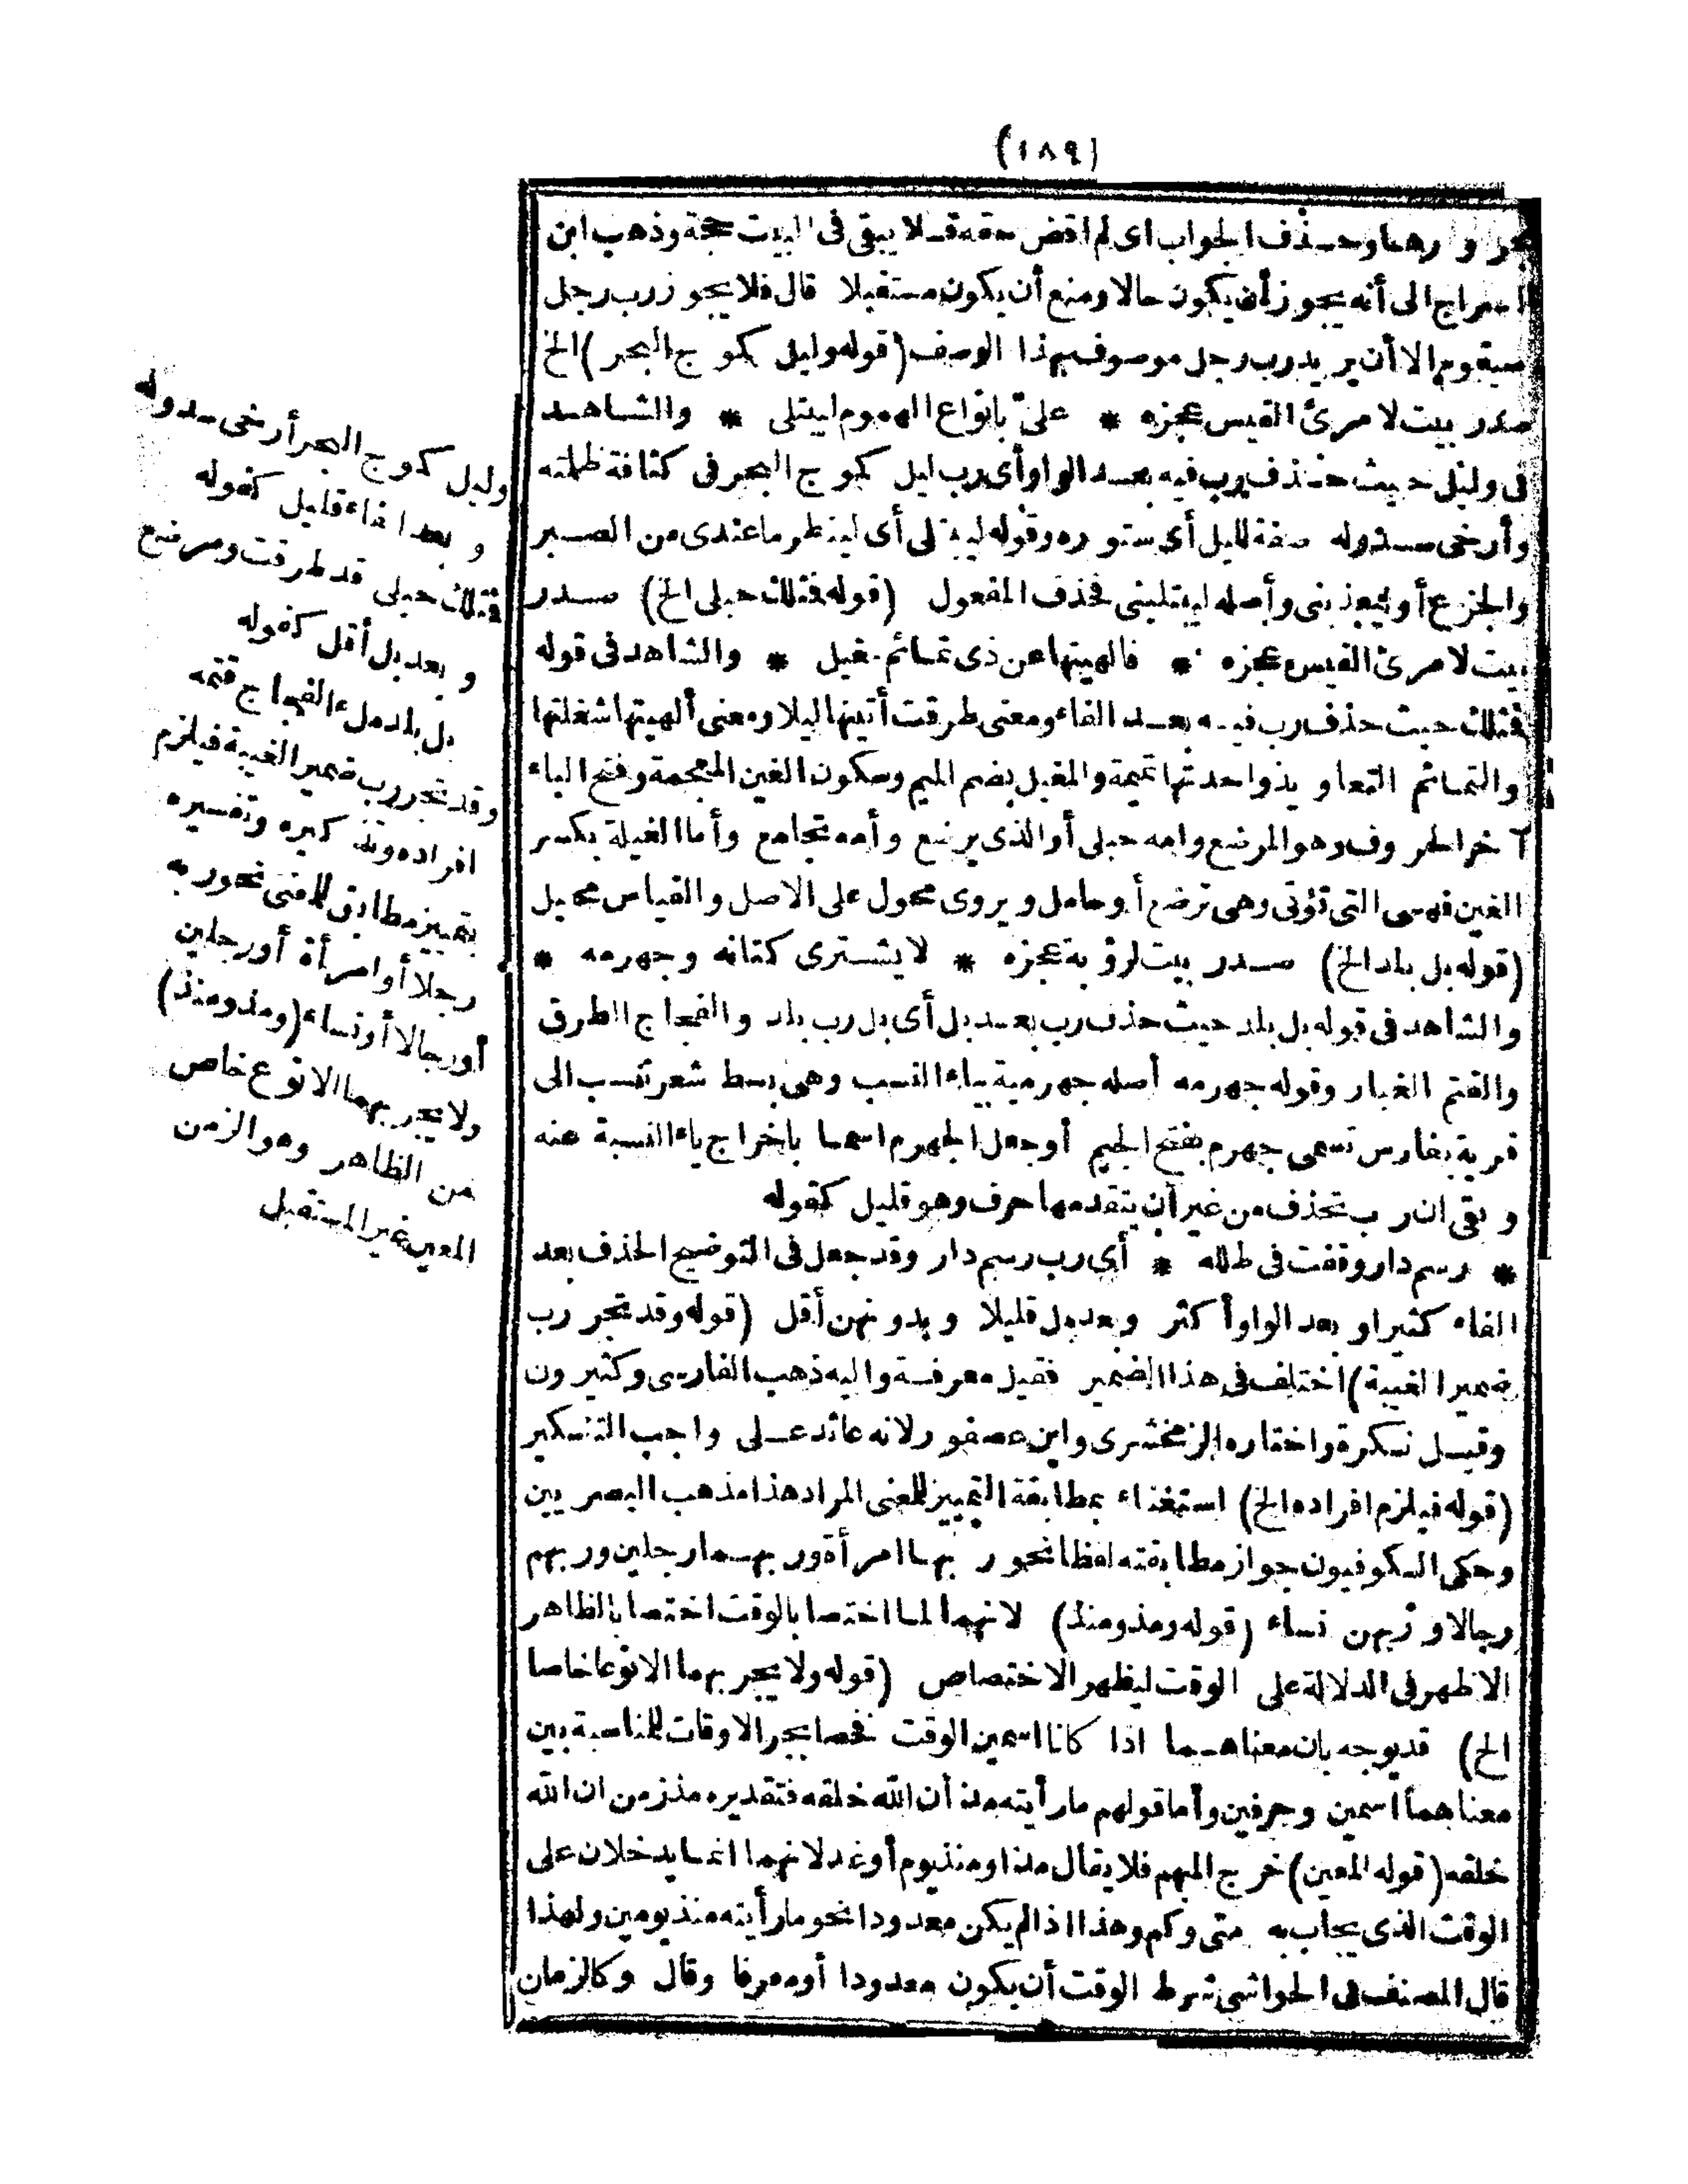 (١٨٩)
وحذف الجواب اى لم اقض حقه فلا يبقى فى البيت حجة وذهب ابن
السراج الى أنه يجوز أن يكون حالا ومنع أن يكون مستقبلا قال فلا يجوز رب رجل
سيقوم الا أن يريد رب رجل موصوف بهذا الوصف (قوله وليل كموج البحر) الخ
صدر بيت لامرئ القيس عجزه * علىّ بانواع الهموم ليبتلى * والشاهد
فى وليل حيث حذف رب فيه بعد الواو أى رب ليل كموج البحر فى كثافة ظلمته
وأرخى سدوله صفة لليل أى ستوره وقوله ليبتلى أى لينظر ما عندى من الصبر
والجزع أو ليعذبنى وأصله ليبتلينى فحذف المفعول (قوله فمثلك حبلى الخ) صدر
بيت لامرئ القيس عجزه * فالهيتها عن ذى تمائم مغيل * والشاهد فى قوله
فمثلك حيث حذف رب فيه بعد الفاء ومعنى طرقت أتيتها ليلا ومعنى ألهيتها شغلتها
والتمائم التعاويذ واحدتها تميمة والمغيل بضم الميم وسكون الغين المعجمة وفتح الياء
آخر الحروف وهو المرضع وامه حبلى أو الذى يرضع وأمه تجامع وأما الغيلة بكسر
الغين فهى التى تؤتى وهى ترضع أو حامل ويروى محول على الاصل والقياس محيل
(قوله بل بلد الخ) صدر بيت لرؤبة عجزه * لا يشترى كتانه وجهرمه *
والشاهد فى قوله بل بلد حيث حذف رب بعد بل أى بل رب بلد والفجاج الطرق
والقتم الغبار وقوله جهرمه أصله جهرمية بياء النسب وهى بسط شعر تنسب الى
قرية بفارس تسمى جهرم بفتح الجيم أو جعل الجهرم اسما باخراج ياء النسبة عنه
وبقى ان رب تحذف من غير أن يتقدمها حرف وهو قليل كقوله
* رسم دار وقفت فى طلله * أى رب رسم دار وقد جعل فى التوضيح الحذف بعد
الفاء كثيرا وبعد الواو أكثر وبعد بل قليلا وبدونهن أقل (قوله وقد تجر رب
ضمير الغيبة) اختلف فى هذا الضمير فقيل معرفة واليه ذهب الفارسى وكثيرون
وقيل نكرة واختاره الزمخشرى وابن عصفور لانه عائد على واجب التنكير
(قوله فيلزم افراده الخ) استغناء بمطابقة التمييز للمعنى المراد هذا مذهب البصريين
وحكى الكوفيون جواز مطابقته لفظا نحو ربها امرأة وربهما رجلين وربهم
رجالا وربهن نساء (قوله ومذ ومنذ) لانهما لما اختصا بالوقت اختصا بالظاهر
الاظهر فى الدلالة على الوقت ليظهر الاختصاص (قوله ولا يجر بهما الا نوعا خاصا
الخ) قد يوجه بان معناهما اذا كانا اسمين الوقت فخصا بجر الاوقات للمناسبة بين
معناهما اسمين وحرفين وأما قولهم ما رأيته مذ أن الله خلقه فتقديره مذ زمن ان الله
خلقه (قوله المعين) خرج المبهم فلا يقال مذ او منذ يوم أو غد لانهما انما يدخلان على
الوقت الذى يجاب به متى وكم وهذا اذا لم يكن معدودا نحو ما رأيته منذ يومين ولهذا
قال المصنف فى الحواشى شرط الوقت أن يكون معدودا أو معرفا وقال وكالزمان
وليل كموج البحر أرخى سدوله
وبعد الفاء قليل كقوله
فمثلك حبلى قد طرقت ومرضع
وبعد بل أقل كقوله
بل بلد ملء الفجاج قتمه
وقد تجر رب ضمير الغيبة فيلزم
افراده وتذكيره وتفسيره
بتمييز مطابق للمعنى نحو ربه
رجلا أو امرأة أو رجلين
أو رجالا أو نساء (ومذ ومنذ)
ولا يجر بهما الا نوع خاص
من الظاهر وهو الزمن
المعين غير المستقبل